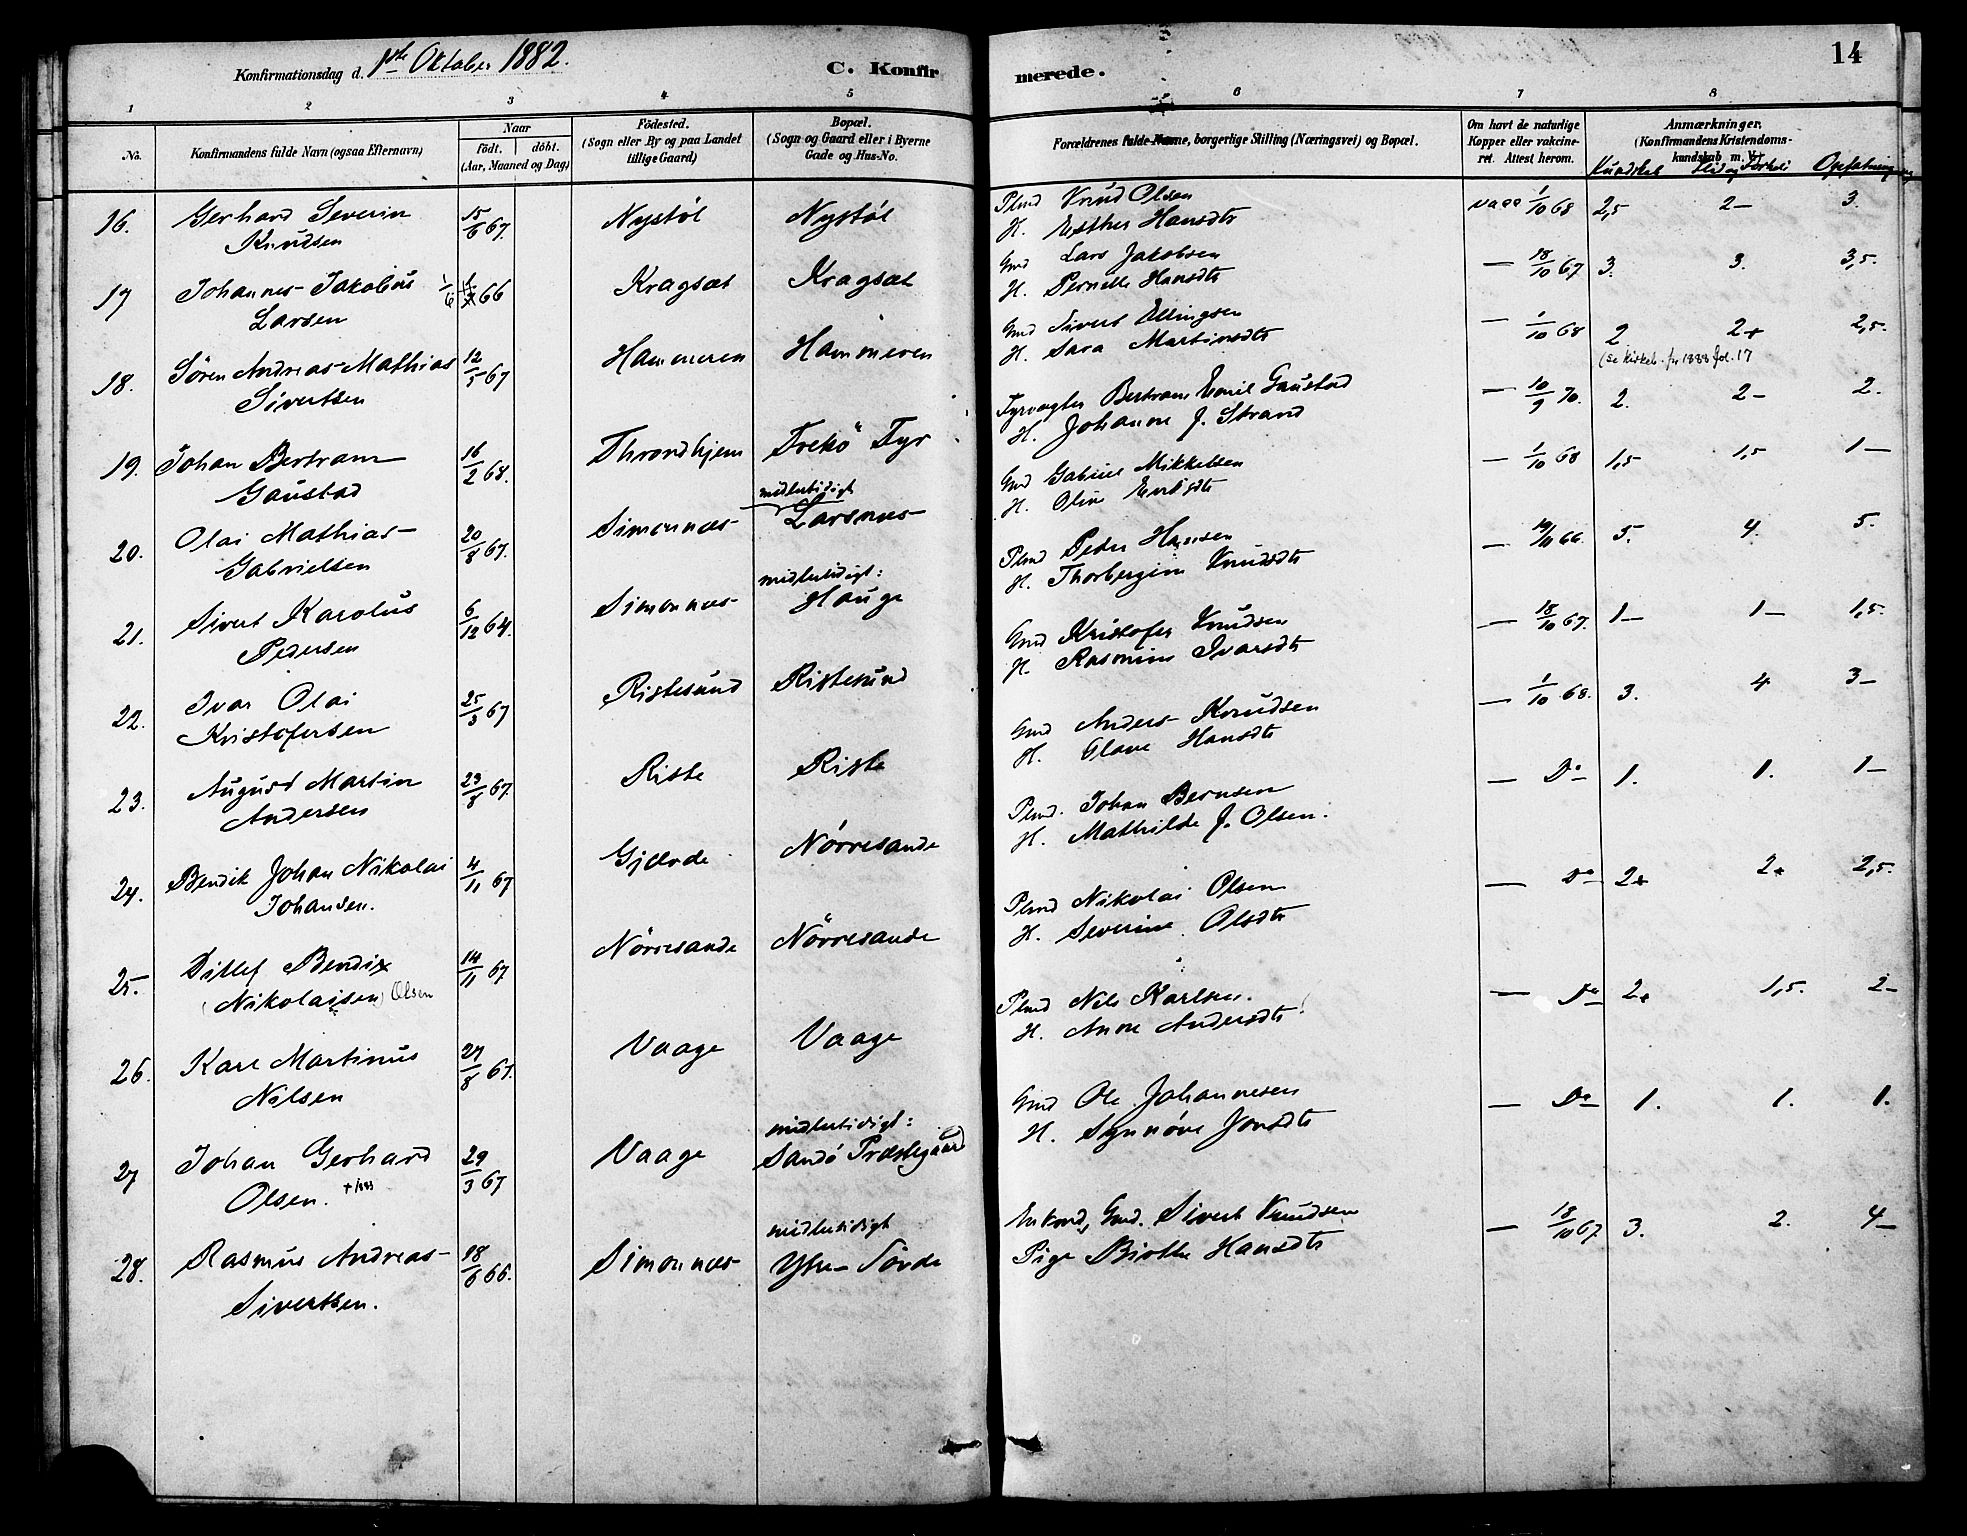 Konfirmationsdag d. 1ste Oktober 1882. C. Konfir
merede. 14
1 2 3 4 5 6 7 8
No.
Konfirmandens fulde Navn (ogsaa Efternavn)
Naar
födt. döbt.
(Aar, Maaned og Dag)
Födested.
(Sogn eller By og paa Landet
tillige Gaard)
Bopæl.
(Sogn og Gaard eller i Byerne
Gade og Hus-No.
Forældrenes fulde Navne, borgerlige Stilling (Næringsvei) og Bopæl.
Om havt de naturlige
Kopper eller vakcine-
ret. Attest herom.
Anmærkninger.
(Konfirmandens Kristendoms-
kundskab m. V.)
Kundskab Flid og Forhold Opfatning
16. Gerhard Severin 15/6 67. Nystöl Nystöl Plmd Knud Olsen vacc 1/10 68 2,5 2- 3.
Knudsen H. Esther Hansdtr
17 Johannes Jakobus 1/6 66 Kragsæt Kragsæt Gmd Lars Jakobsen — 18/10 67 3. 3. 3,5.
Larsen H. Pernille Hansdtr
18. Sören Andreas Mathias 12/5 67 Hammeren Hammeren Gmd Sivert Ellingsen — 1/10 68 2 2+ 2,5.
Sivertsen H. Sara Martinsdtr (se Kirkeb. for 1883 fol. 17
19. Johan Bertram 16/2 68. Throndhjem Frekö Fyr Fyrvogter Bertram Emil Gaustad — 10/9 70. 2. 2- 2.
Gaustad H. Johanne J. Strand
20. Olai Mathias 20/8 67. Simonnæs midlertidigt Larsnes Gmd Gabriel Mikkelsen — 1/10 68 1,5 1,5 1-
Gabrielsen H. Oline
21. Sivert Karolus 6/12 64. Simonnæs midlertidigt: Hauge Plmd Peder Hansen — 66. 5. 4. 5.
Pedersen H. Thorbergine Knudsdtr
22. Ivar Olai 25/3 67 Ristesund Ristesund Gmd Kristofer Knudsen — 18/10 67. 1- 1- 1,5.
Kristofersen H. Rasmine Ivarsdtr
23. August Martin 23/8 67. Riste Riste Gmd Anders Knudsen — 1/10 68. 3. 4 3-
Andersen H. Olave Hansdtr
24. Bendik Johan Nikolai 4/11 67 Gjærde Nörresande Plmd. Johan Berntsen — Do 1. 1. 1-
Johansen. H. Mathilde J. Olsen.
25. Ditlef Bendix 14/11 67 Nörresande Nörresande Plmd Nikolai Olsen — Do 2+ 2+ 2,5.
(Nikolaisen) Olsen H. Severine Olsdtr
26. Karl Martinus 27/8 67. Vaage Vaage Plmd Nils Karlsen. — Do 2+ 1,5. 2-
Nilsen H. Anne Andersdtr
27 Johan Gerhard 29/3 67 Vaage midlertidigt: Sandö Præstegaard Gmd Ole Johannesen — Do 1. 1. 1.
Olsen. H. Synnöve Jonsdtr
28. Rasmus Andreas 18/6 66. Simonnæs midlertidigt Ytre Sörde Enkemd, Gmd. Sivert Knudsen — 18/10 67 3. 2. 4-
Sivertsen. Pige Birthe Hansdtr